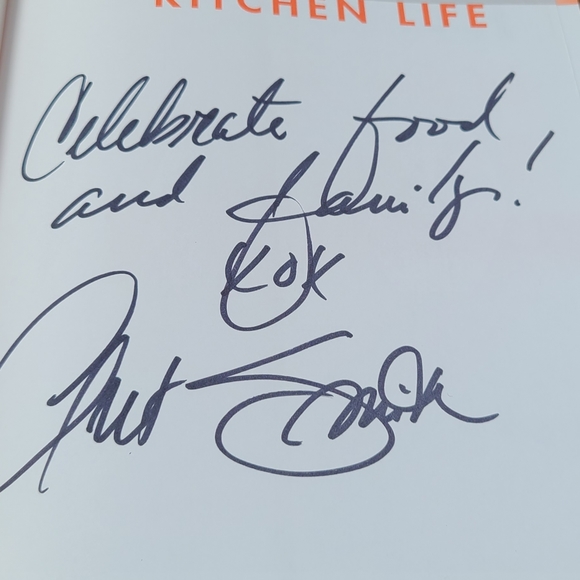 KITCHEN LIFE
Celebrate food
and family!
xox
Art Smith